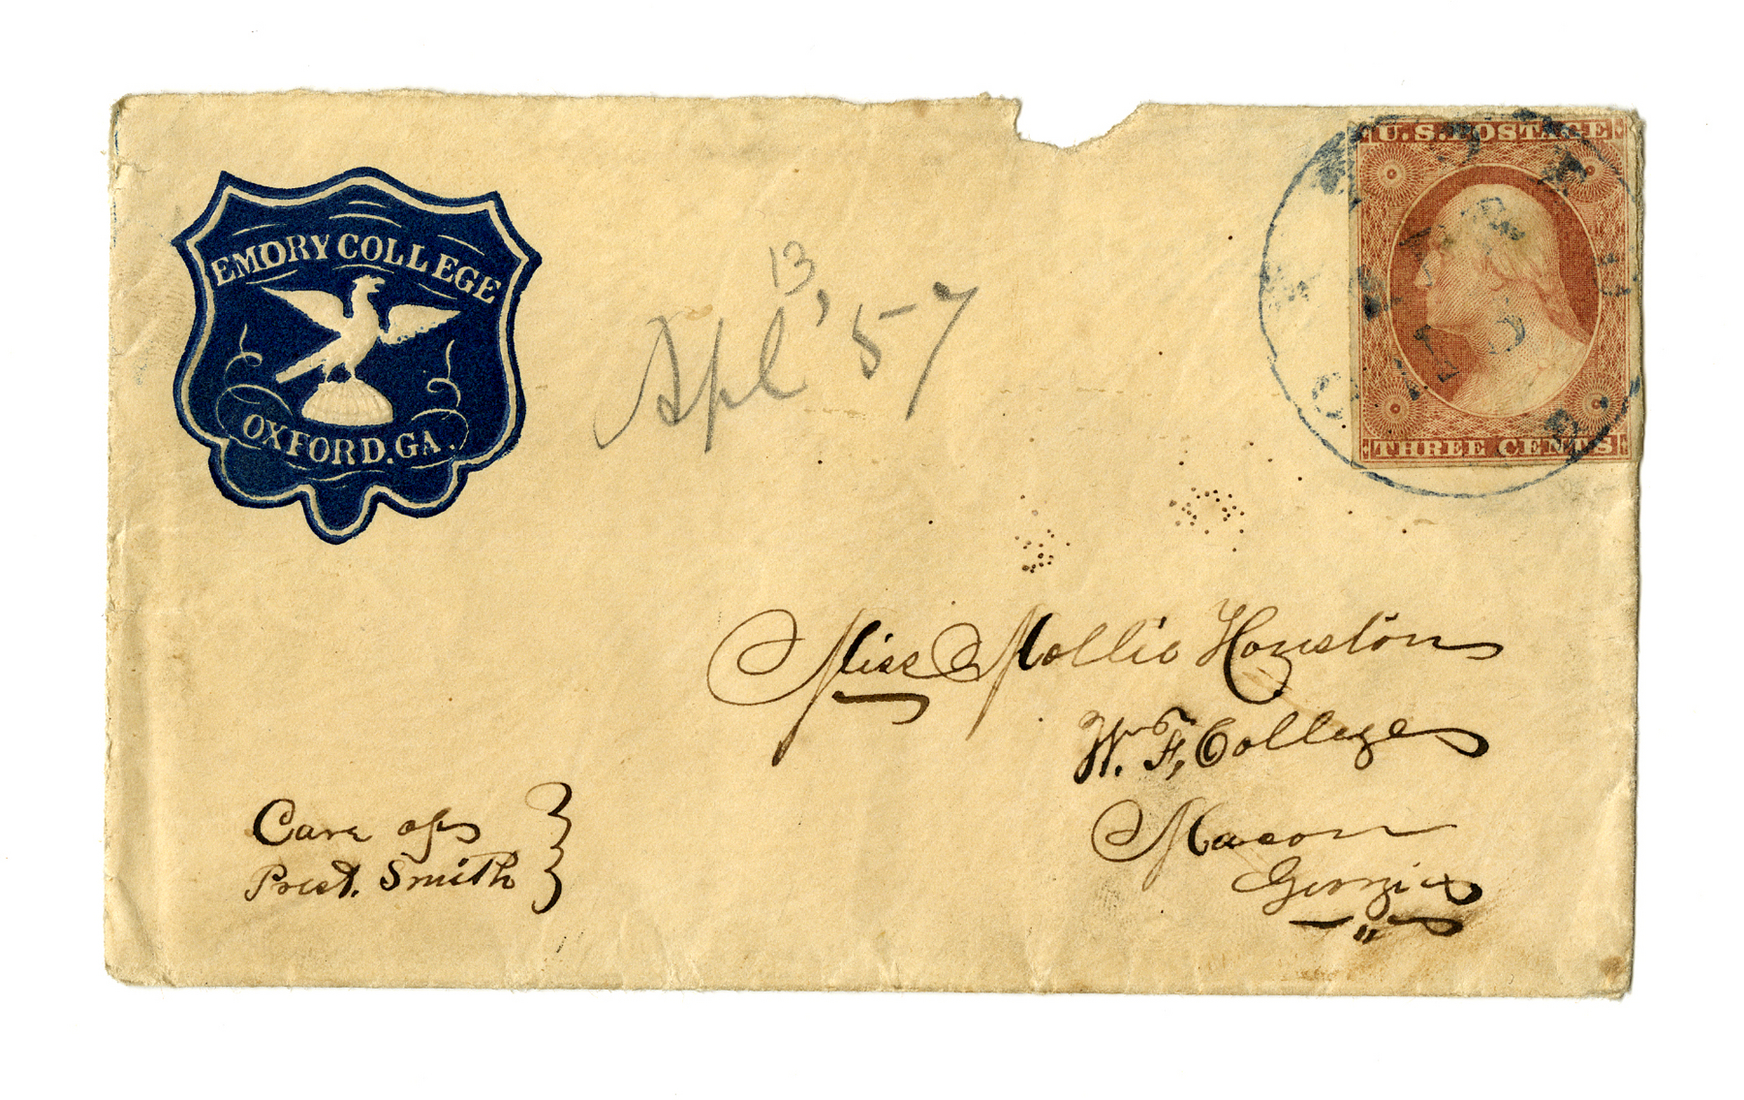 EMORY COLLEGE
OXFORD. GA.
Apl 13, '57
U.S. POSTAGE
THREE CENTS
Miss Mollie Houston
W. F, College
Macon
Georgia
Care of
Prest. Smith